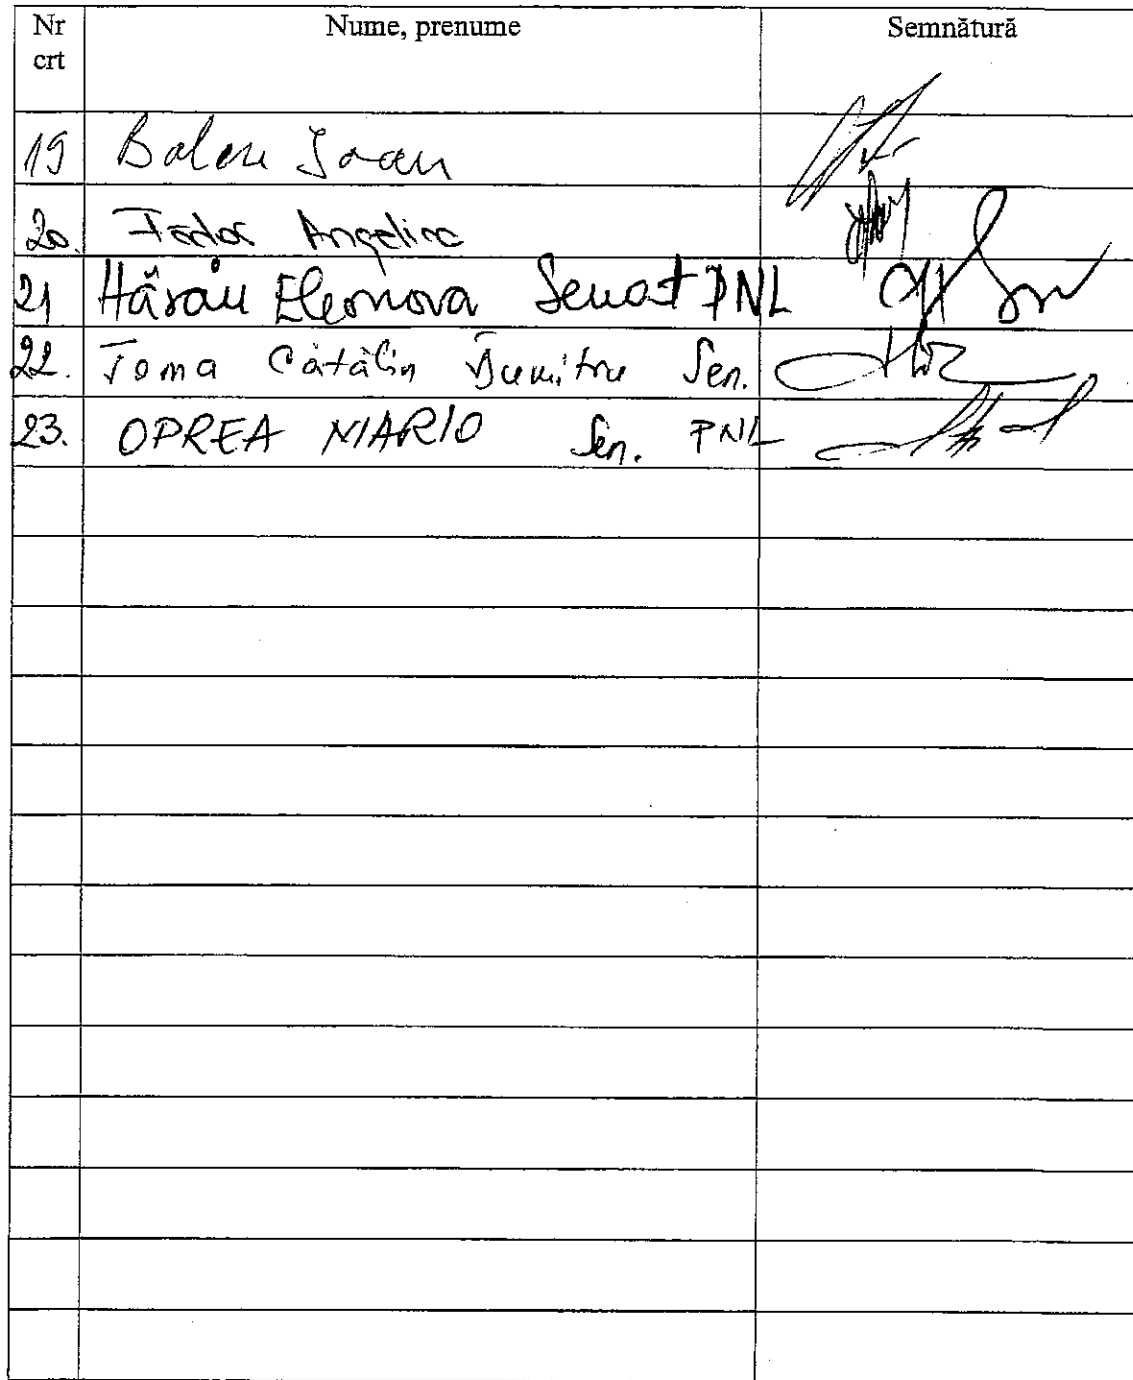 Nr crt Nume, prenume Semnătură
19 Balan Ioan
20. Fedor Angelica
21 Hărău Eleonora Senat PNL
22. Toma Cătălin Dumitru Sen.
23. OPREA MARIO Sen. PNL